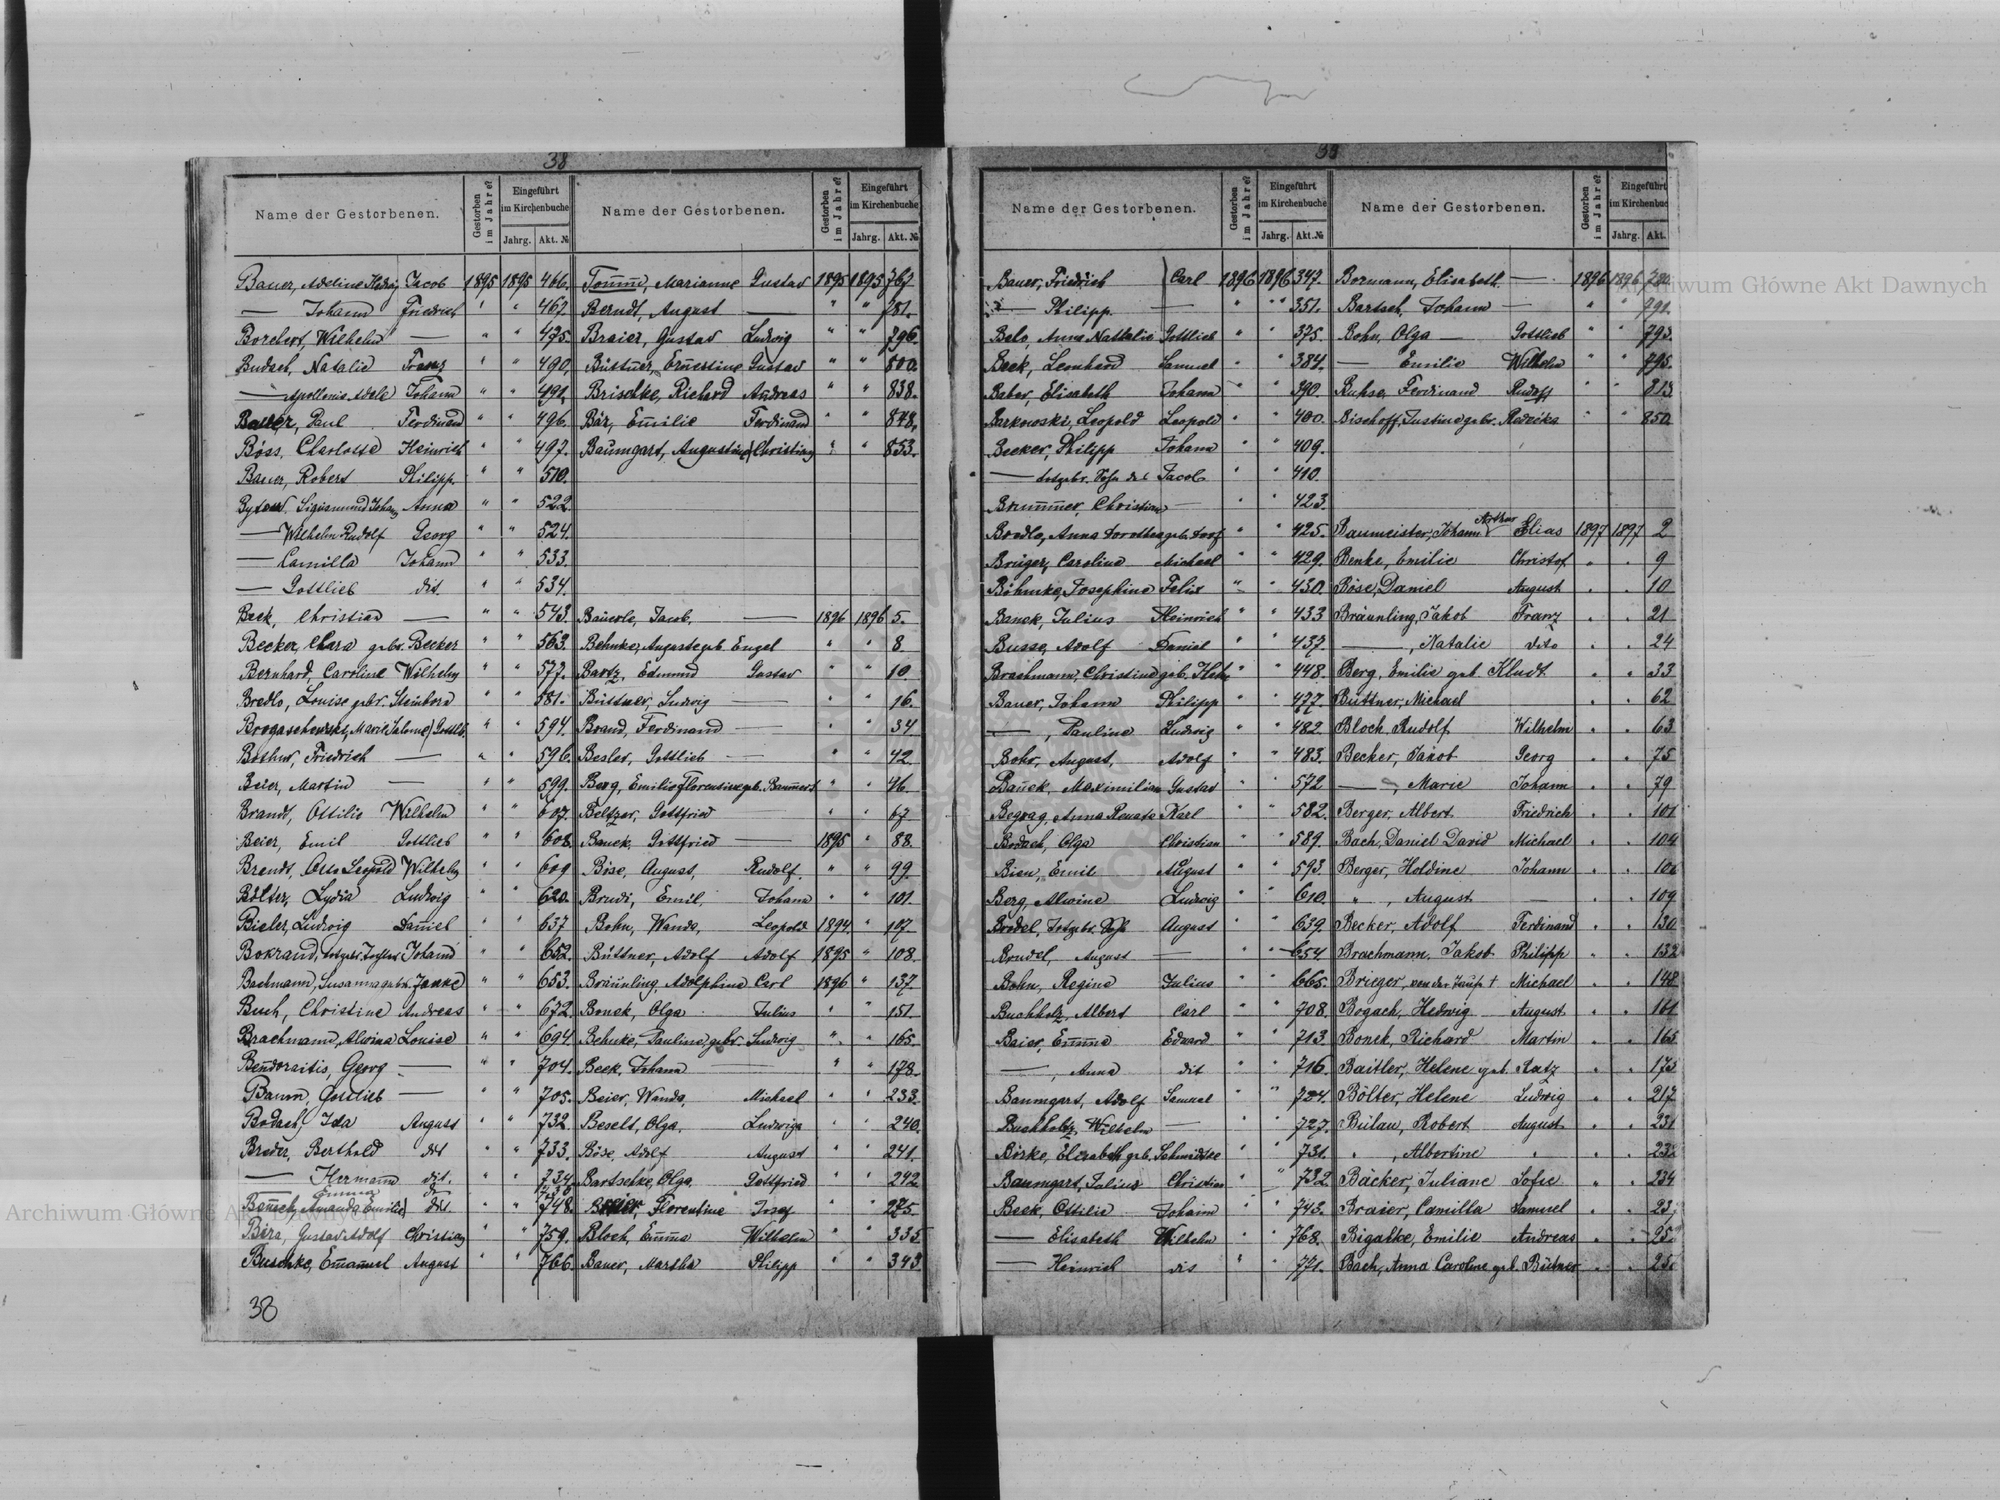 38
Name der Gestorbenen. Gestorben im Jahre? Eingeführt im Kirchenbuche Jahrg. Akt. №
Bauer, Adeline Hedwig Jacob 1895 1895 466.
— Johann Friedrich " " 467.
Borchert, Wilhelm — " " 475.
Budach, Natalie Franz " " 490.
— Apollonia Adele Johann " " 491.
Bauer, Paul Ferdinand " " 496.
Böss, Charlotte Heinrich " " 497.
Bauer, Robert Philipp " " 510.
Sigismund Johann Anna " " 522.
— Wilhelm Rudolf Georg " " 524.
— Camilla Johann " " 533.
— Gottlieb dit. " " 534.
Beck, Christian — " " 543.
Becker, Clara gebr. Becker " " 563.
Bernhard, Caroline Wilhelm " " 577.
Bredlo, Louise gebr. Steinborn " " 581.
Marie Salome Gottlb. " " 594.
Friedrich — " " 596.
Beier, Martin — " " 599.
Brandt, Ottilie Wilhelm " " 607.
Beier, Emil Gottlieb " " 608.
Brandt, Otto Leopold Wilhelm " " 609
Bölter, Lydia Ludwig " " 620.
Bieler, Ludwig Daniel " " 637
Johann " " 652.
Bachmann, Susanna gebr. Janke " " 653.
Buch, Christine Andreas " " 672.
Brachmann, Alwina Louise " " 694.
Bendoraitis, Georg — " " 704.
Baum, Gottlieb — " " 705.
Bodach, Ida August " " 732.
Breder, Berthold dit " " 733.
— Hermann dit. " " 734.
Amanda Emilie dit. " " 748.
Gustav Adolf Christian " " 759.
Buschke, Emanuel August " " 766.
38
Name der Gestorbenen. Gestorben im Jahre? Eingeführt im Kirchenbuche Jahrg. Akt. №
Marianne Gustav 1895 1895 767
Berndt, August — " " 781.
Braier, Gustav Ludwig " " 796.
Büttner, Ernestine Gustav " " 800.
Brischke, Richard Andreas " " 838.
Bär, Emilie Ferdinand " " 848.
Baumgart, Augustine Christian " " 853.
Bäuerle, Jacob. — 1896 1896 5.
Behnke, Auguste geb. Engel " " 8
Bartz, Edmund Gustav " " 10.
Büttner, Ludwig — " " 16.
Brand, Ferdinand — " " 34
Besler, Gottlieb — " " 42
Berg, Emilie Florentine geb. " " 46.
Beltzer, Gottfried " " 67
Banek, Gottfried — 1895 " 88.
Böse, August, Rudolf. " " 99
Brudi, Emil, Johann " " 101.
Bohn, Wanda, Leopold 1894. " 107
Büttner, Adolf Adolf 1895 " 108.
Bräunling, Adolphine Carl 1896 " 137.
Bonek, Olga Julius " " 151.
Behnke, Pauline, gebr. Ludwig " " 165.
Beck, Johann — " " 178.
Beier, Wanda, Michael " " 233.
Beselt, Olga. Ludwiga " " 240.
Böse, Adolf August " " 241.
Bartschke, Olga. Gottfried " " 242
Florentine Josef " " 275.
Bloch, Emma Wilhelm " " 335
Bauer, Martha Philipp " " 343.
39
Name der Gestorbenen. Gestorben im Jahre? Eingeführt im Kirchenbuche Jahrg. Akt. №
Bauer, Friedrich Carl 1896 1896 347.
— Philipp — " " 351.
Belo, Anna Nathalie Gottlieb " " 375.
Beek, Leonhard Samuel " " 384.
Baber, Elisabeth Johann " " 390.
Barkowski, Leopold Leopold " " 400.
Becker, Philipp Johann " " 409.
— totgebr. Sohn des Jacob " " 410.
Brummer, Christian — " " 423.
Bredlo, Anna Dorothea geb. " " 425.
Brüger, Caroline Michael " " 429.
Böhmke, Josephine Felix " " 430.
Banek, Julius Heinrich " " 433
Busse, Adolf Daniel " " 437.
Brachmann, Christine geb. " " 448.
Bauer, Johann Philipp " " 477.
—, Pauline Ludwig " " 482
Bohr, August, Adolf " " 483.
Banek, Maximilian Gustav " " 572
Anna Renata Karl " " 582.
Bodach, Olga Christian " " 589.
Bien, Emil August " " 593.
Berg, Alwine Ludwig " " 610.
August " " 639.
August — " " 654
Bohn, Regine Julius " " 665.
Buchholz, Albert Carl " " 708.
Baier, Emma Edward " " 713.
—, Anna dit " " 716.
Baumgart, Adolf Samuel " " 724.
Buchholtz, Wilhelm — " " 727.
Börke, Elisabeth geb. Schmidtke " " 731.
Baumgart, Julius Christian " " 732
Beek, Ottilie Johann " " 743.
— Elisabeth Wilhelm " " 768.
— Heinrich dit " " 771.
Name der Gestorbenen. Gestorben im Jahre? Eingeführt im Kirchenbuc Jahrg. Akt.
Bormann, Elisabeth — 1896 1896
Bartsch, Johann — " " 791.
Bohn, Olga — Gottlieb " " 793.
— Emilie Wilhelm " " 795.
Ferdinand Rudolf " " 813
Bischoff, Justine gebr. " " 850.
Baumeister, Johann Arthur Elias 1897 1897 2
Benke, Emilie Christof. " " 9
Böse, Daniel August " " 10
Bräunling, Jakob Franz " " 21
—, Natalie dito " " 24
Berg, Emilie geb. Kludt " " 33
Büttner, Michael " " 62
Bloch Rudolf Wilhelm " " 63
Becker, Jakob Georg " " 75
—, Marie Johann " " 79
Berger, Albert Friedrich " " 101
Bach, Daniel David Michael " " 104
Berger, Holdine Johann " " 106
", August — " " 109
Becker, Adolf Ferdinand " " 130
Brachmann, Jakob Philipp " " 132
Brieger, vor der Taufe † Michael " " 148
Bogach, Hedwig August " " 161
Bonek, Richard Martin " " 165
Baitler, Helene geb. Ratz " " 175
Bölter, Helene Ludwig " " 217
Bülau, Robert August " " 231
", Albertine " " " 232
Bäcker, Juliane Sofie " " 234
Braier, Camilla Samuel " " 23
Bigalke, Emilie Andreas " " 25
Bach, Anna Caroline geb. Bütner " " 25
Archiwum Główne Akt Dawnych
Archiwum Główne Akt Dawnych